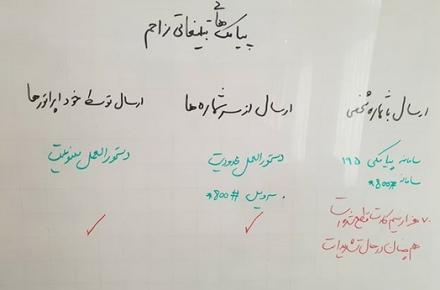 پیامک‌های تبلیغاتی مزاحم
ارسال با شماره شخصی
سامانه پیامکی ۱۹۵
سامانه #800*
۷۰ هزار سیم کارت قطع شده است
همچنان در حال تشدید است
ارسال از سرشماره ها
دستورالعمل محدودیت
سرویس #800*
ارسال توسط خود اپراتورها
دستورالعمل ممنوعیت